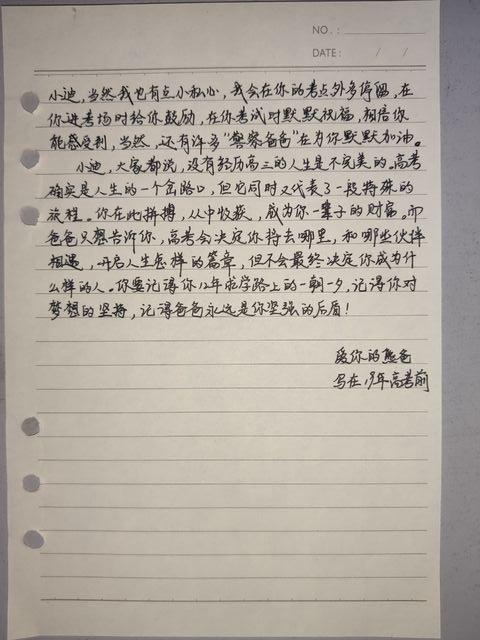 NO.:
DATE: / /
小迪,当然我也有点小私心,我会在你的考点外多停留,在
你进考场时给你鼓励,在你考试时默默祝福,相信你
能感受到,当然,还有许多“警察爸爸”在为你默默加油。
小迪,大家都说,没有经历高三的人生是不完美的。高考
确实是人生的一个岔路口,但它同时又代表了一段特殊的
旅程。你在此拼搏,从中收获,成为你一辈子的财富。而
爸爸只想告诉你,高考会决定你将去哪里,和哪些伙伴
相遇,开启人生怎样的篇章,但不会最终决定你成为什
么样的人。你要记得你12年求学路上的一朝一夕,记得你对
梦想的坚持,记得爸爸永远是你坚强的后盾!
爱你的熊爸
写在19年高考前